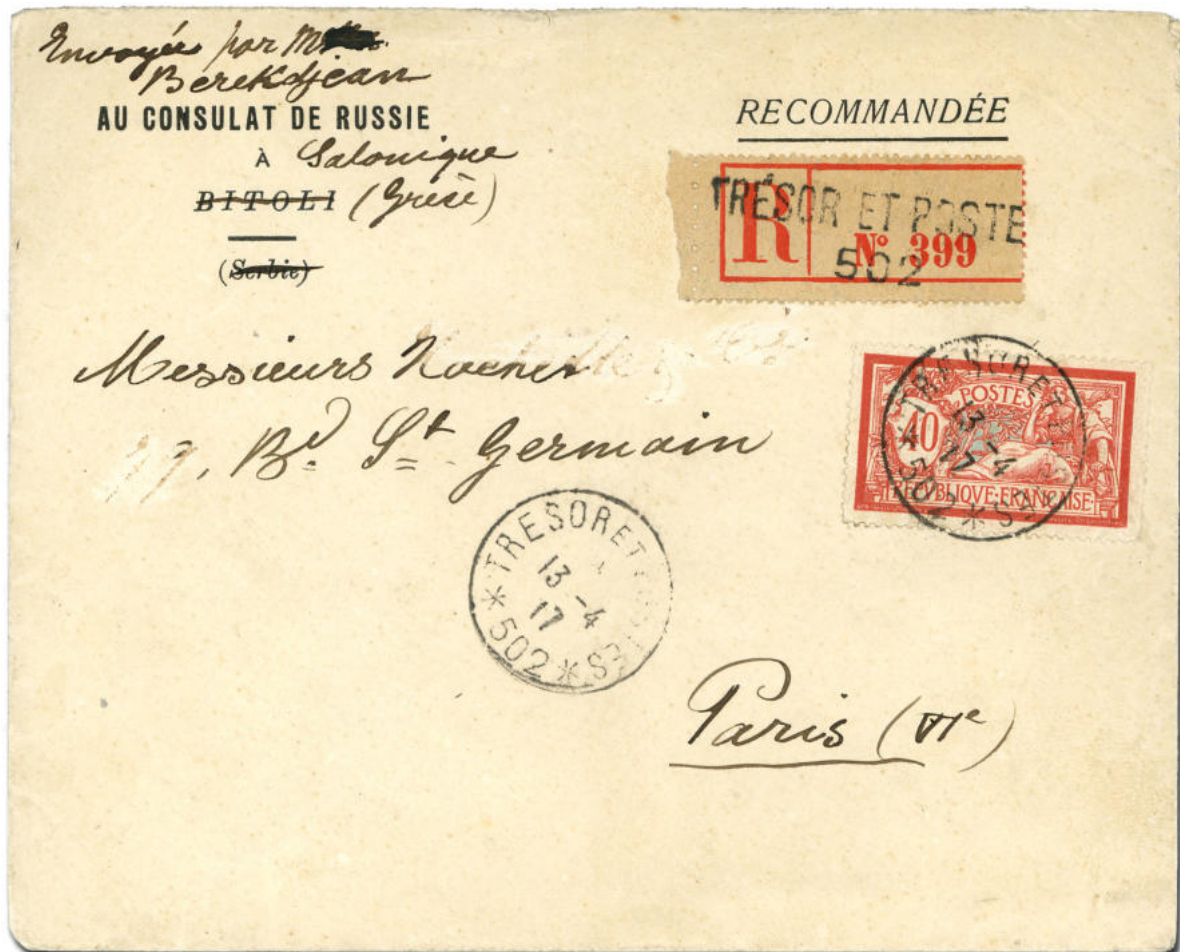 Envoyée par
Berekdjean
AU CONSULAT DE RUSSIE
À Salonique
BITOLI (Grèce)
(Serbie)
RECOMMANDÉE
TRÉSOR ET POSTE
R Nº 399
502
Messieurs
Bd. St. Germain
POSTES
40
REPUBLIQUE FRANÇAISE
TRESOR ET POSTES
13 -4
17
* 502 *
TRESOR ET POSTES
13 -4
17
* 502 *
Paris (VIe)